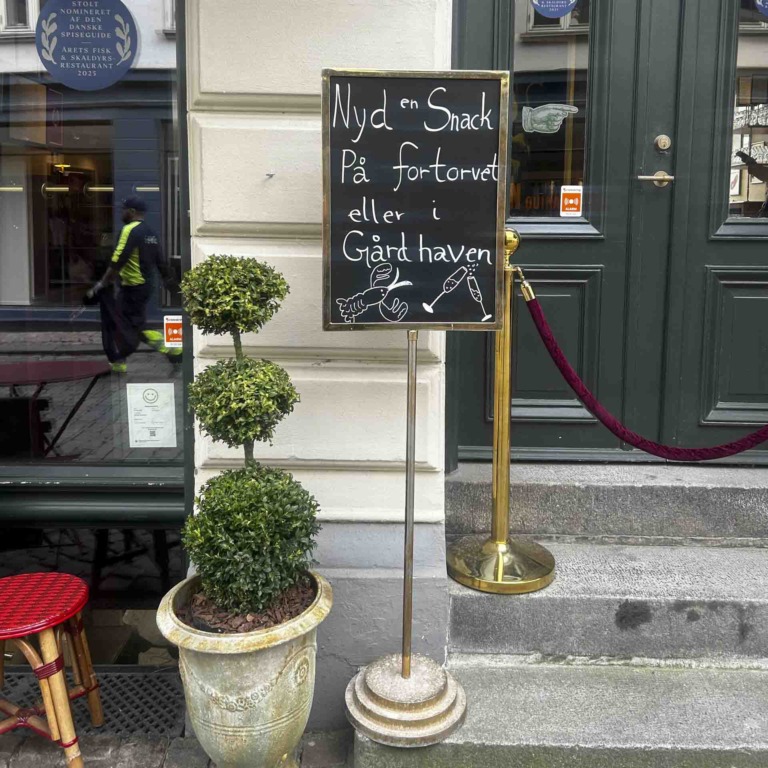 STOLT
NOMINERET
AF DEN
DANSKE
SPISEGUIDE
ÅRETS FISK
& SKALDYRS-
RESTAURANT
2025
Nyd en Snack
På fortorvet
eller i
Gårdhaven